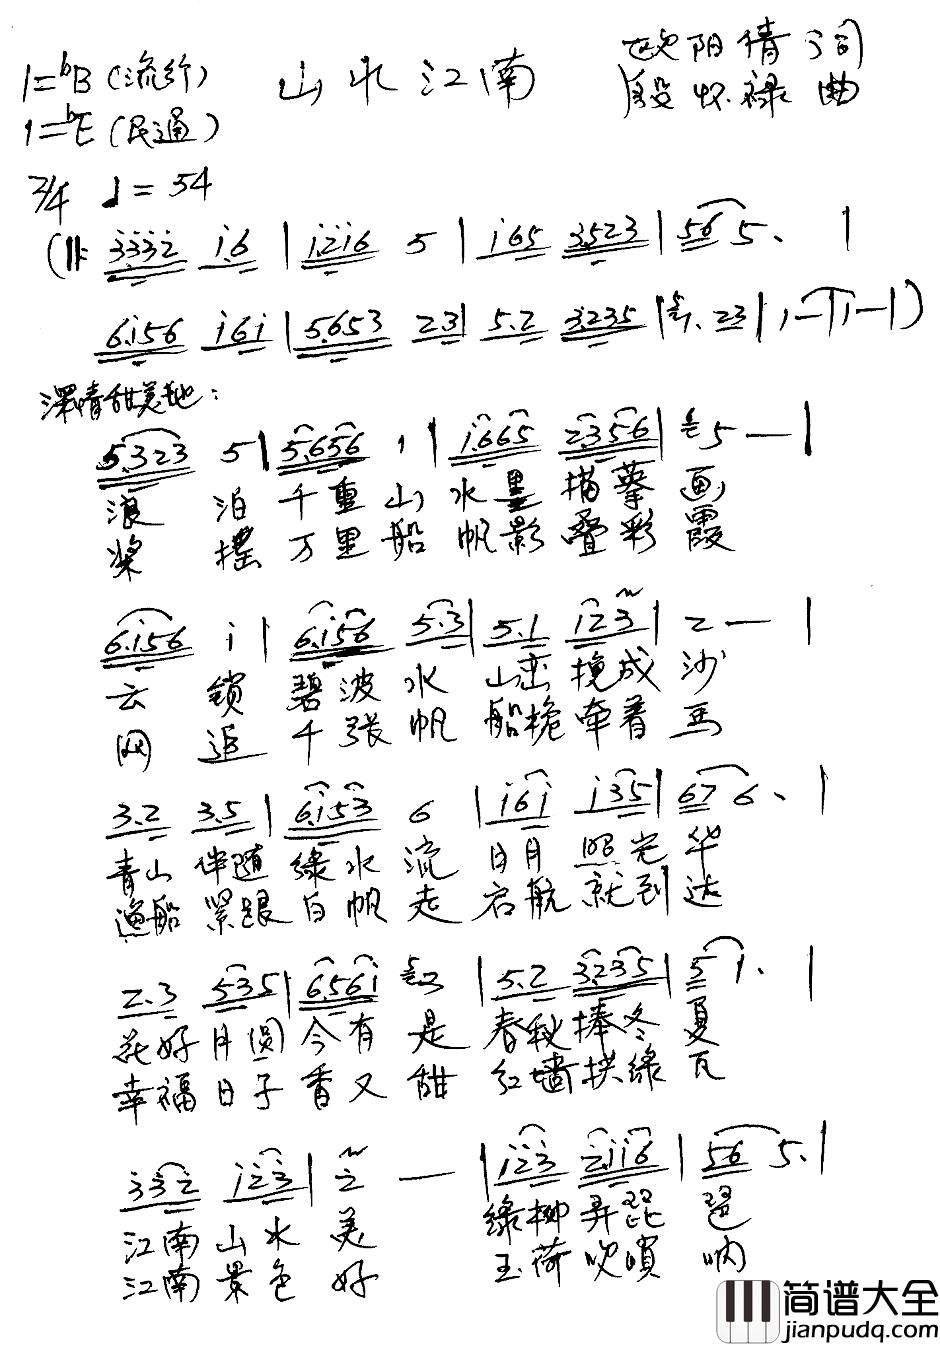 1=bB (流行) 山水江南 欧阳倩 词
1=bE (民通) 段怀禄 曲
2/4 ♩=54
(‖: 3332 i6 | i2i6 5 | i65 3523 | 565. |
6i56 i6i | 5.653 23 | 5.2 3235 | 1. 23 | 1 — | 1 — | )
深情甜美地:
5.323 5 | 5.656 1 | i.665 2356 | 5 — |
浪 泊 千重山 水墨描摹 画
桨 摇 万里船 帆影叠彩 霞
6.i56 i | 6.i56 5.3 | 5.1 i23 | 2 — |
云 锁 碧波水 山峦挽成 沙
网 追 千张帆 船桅牵着 马
3.2 3.5 | 6.i53 6 | i6i i35 | 67 6. |
青山伴随绿水流 日月照光华
渔船紧跟白帆走 启航就到达
2.3 535 | 6.56i 3 | 5.2 3235 | 5 1. |
花好月圆今有是 春秋捧冬夏
幸福日子香又甜 红墙拱绿瓦
332 i23 | 2 — | i23 2ii6 | 56 5. |
江南山水美 绿柳弄琵琶
江南景色好 玉荷吹唢呐
简谱大全
jianpudq.com